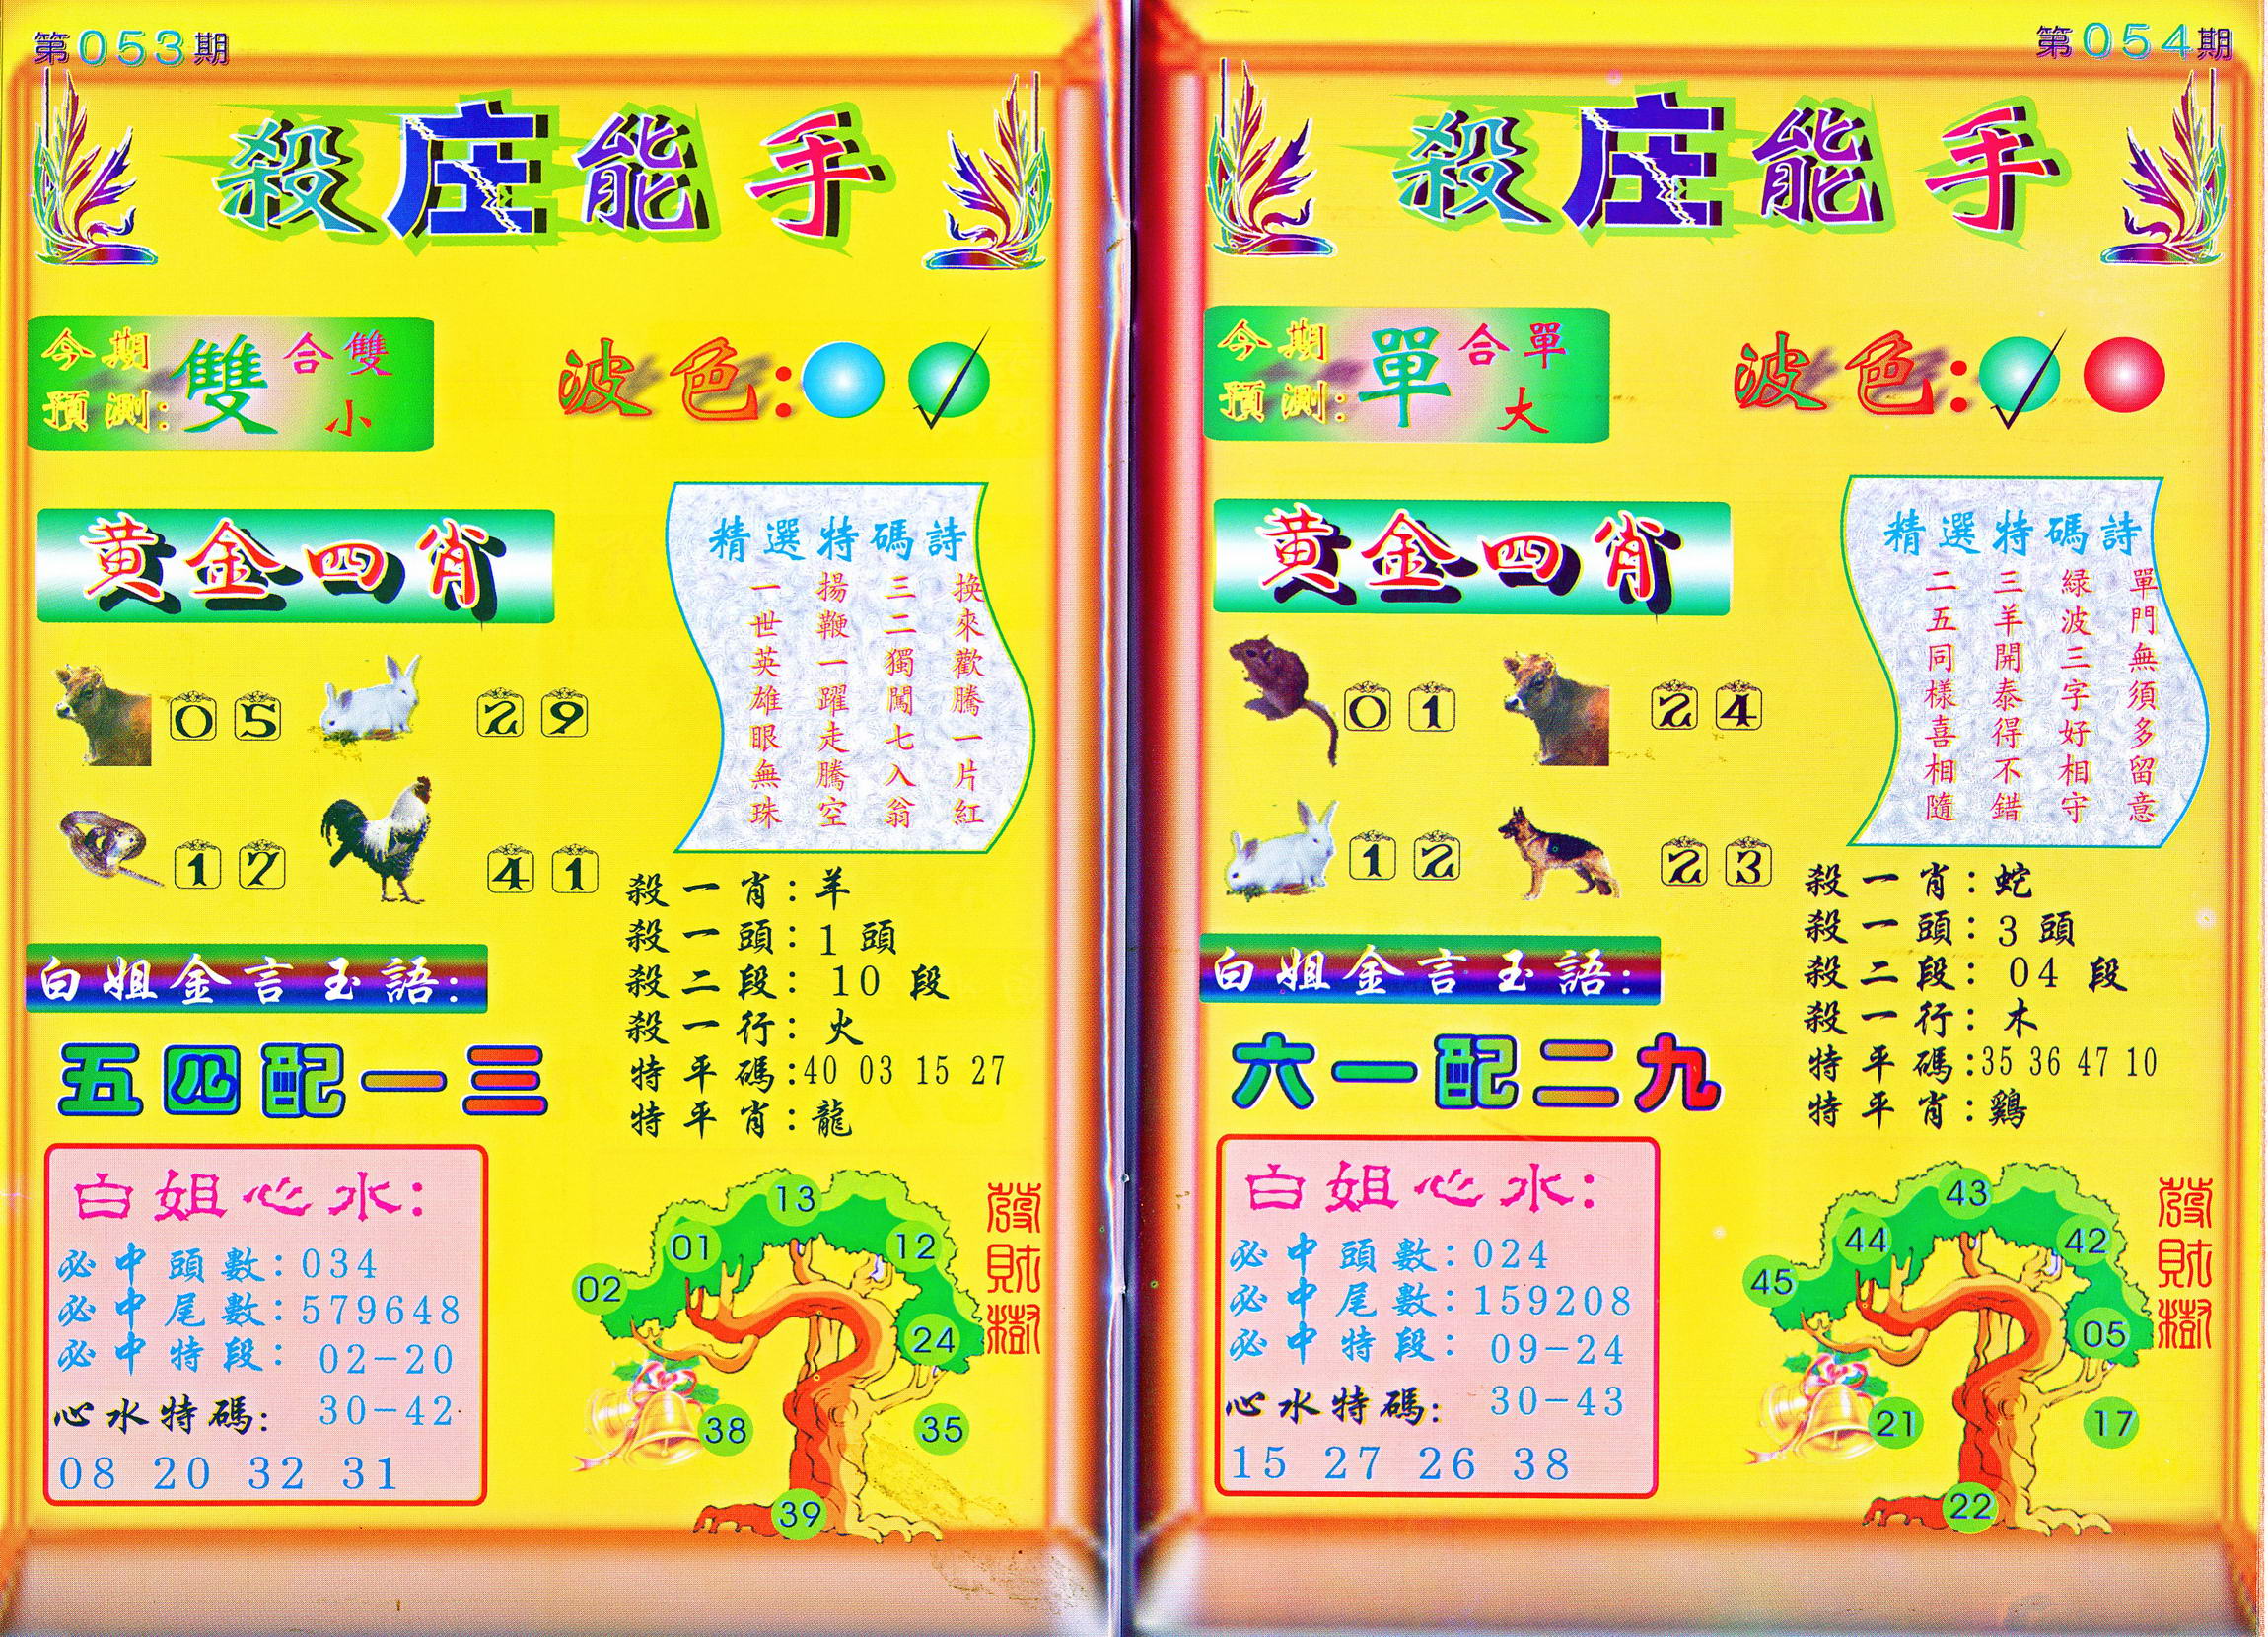 第053期
殺庄能手
今期
預測:
雙
合雙
小
波色:
黄金四肖
05
29
17
41
精選特碼詩
换來歡騰一片紅
三二獨闖七入翁
揚鞭一躍走騰空
一世英雄眼無珠
殺一肖:羊
殺一頭:1頭
殺二段:10段
殺一行:火
特平碼:40 03 15 27
特平肖:龍
白姐金言玉語:
五四配一三
白姐心水:
必中頭數:034
必中尾數:579648
必中特段:02-20
30-42
心水特碼:
08 20 32 31
13
01
12
02
24
38
35
39
發財樹
第054期
殺庄能手
今期
預測:
單
合單
大
波色:
黄金四肖
01
24
12
23
精選特碼詩
單門無須多留意
緑波三字好相守
三羊開泰得不錯
二五同樣喜相隨
殺一肖:蛇
殺一頭:3頭
殺二段:04段
殺一行:木
特平碼:35 36 47 10
特平肖:鷄
白姐金言玉語:
六一配二九
白姐心水:
必中頭數:024
必中尾數:159208
必中特段:09-24
30-43
心水特碼:
15 27 26 38
43
44
42
45
05
21
17
22
發財樹